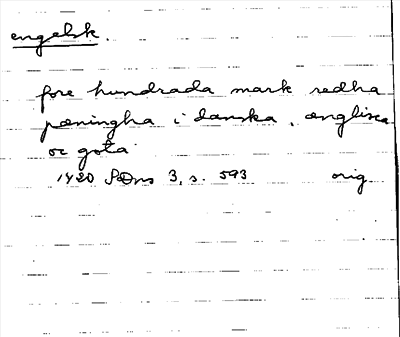 engelsk.
fore hundrada mark redha
pæningha i danska, ænglisca
oc gota
1420 SDns 3, s. 593 orig